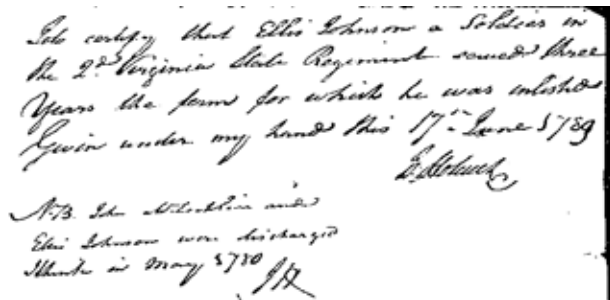 I do certify that Ellis Johnson a Soldier in
the 2d Virginia State Regiment served three
Years the term for which he was inlisted
Given under my hand this 17th June 1789
N.B. John and
Ellis Johnson were discharged
I think in May 1780